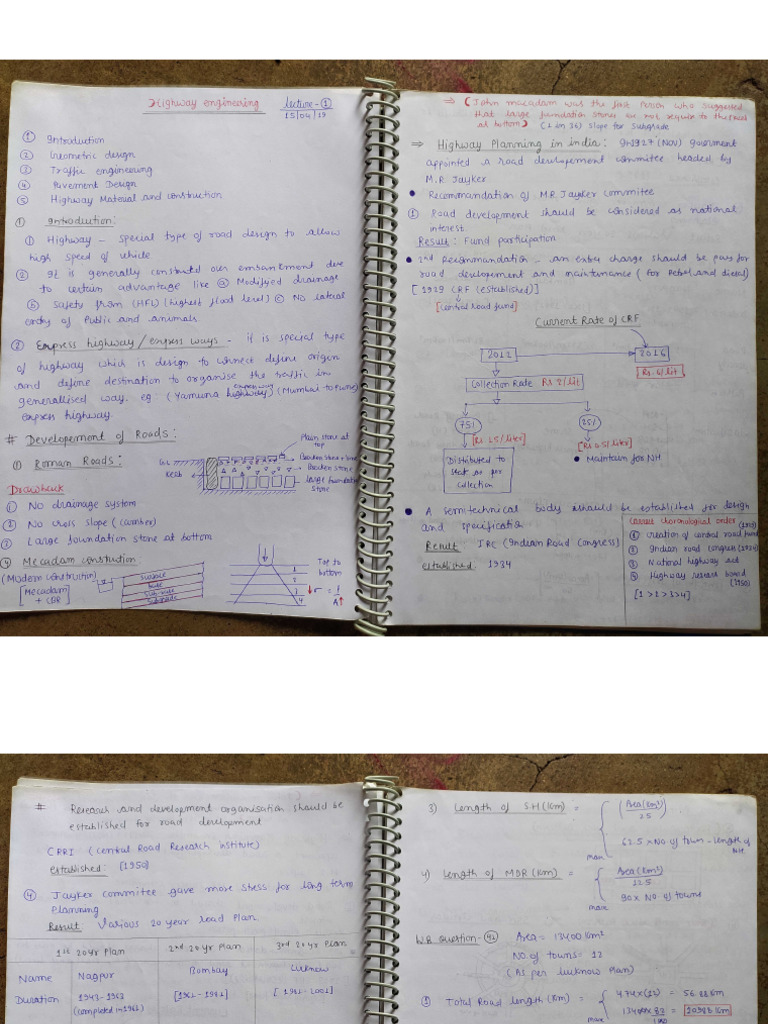 Highway engineering
Lecture - ①
15/04/19
① Introduction
② Geometric design
③ Traffic engineering
④ Pavement Design
⑤ Highway Material and construction
① Introduction:
① Highway - special type of road design to allow
high speed of vehicle
② It is generally constructed over embankment due
to certain advantage like ⓐ Modifyed drainage
ⓑ safety from (HFL) (highest flood level) ⓒ No lateral
entry of Public and animals.
③ Express highway/express ways - it is special type
of highway which is design to connect define origin
and define destination to organise the traffic in
generallised way. eg. (Yamuna expressway) (Mumbai to Pune)
express highway.
# Developement of Roads:
① Roman Roads:
Plain stone at
top
Broken stone
Broken stone
large foundation
stone
Kerb
Drawback
① No drainage system
② No cross slope (camber)
③ Large foundation stone at bottom
④ Mecadam constrution
(Modern construction)
[Mecadam
+ CBR]
surface
Base
Sub base
Subgrade
Top to
bottom
↓σ = f/A↑
⇒ (John macadam was the first person who suggested
that large foundation stones are not require to the placed
at bottom) (1 in 36) slope for subgrade
⇒ Highway Planning in india: In 1927 (NOV) government
appointed a road development committee headed by
M.R. Jayker
• Recommandation of M.R. Jayker Committee
① Road development should be considered as national
interest.
Result: Fund participation
• 2nd Recommandation - an extra charge should be pass for
road development and maintenance (for Petrol and diesel)
[1929 CRF (established)]
[central Road fund]
Current Rate of CRF
2012
2016
[Rs. 6/lit]
Collection Rate Rs 2/lit
75%
25%
[Rs 1.5/liter]
[Rs 0.5/liter]
Distributed to
state as per
collection
• Maintain for NH
• A semitechnical body should be established for design
and specification
Result IRC (Indian Road Congress)
established: 1934
Correct chronological order
① creation of central road fund
② Indian road congress (1934)
③ National highway act
④ Highway research board
[1>2>3>4]
# Research and development organisation should be
established for road development
CRRI (central Road Research institute)
established: [1950]
④ Jayker committee gave more stress for long term
Planning
Result Various 20 year road Plan
1st 20 yr Plan
2nd 20 yr Plan
3rd 20 yr Plan
Name
Nagpur
Bombay
Lucknow
Duration
1943-1963
(completed in 1961)
[1961-1981]
[1981-2001]
3) Length of SH (Km) =
Area (km²)
25
62.5 × No of town - length of
max
4) Length of MDR (Km) =
Area (km²)
12.5
90 × No. of towns
max
W.B. Question- 42
Area = 13400 km²
NO. of towns = 12
(As per lucknow Plan)
① Total Road length (Km) =
4.74 × (12) = 56.88 Km
max